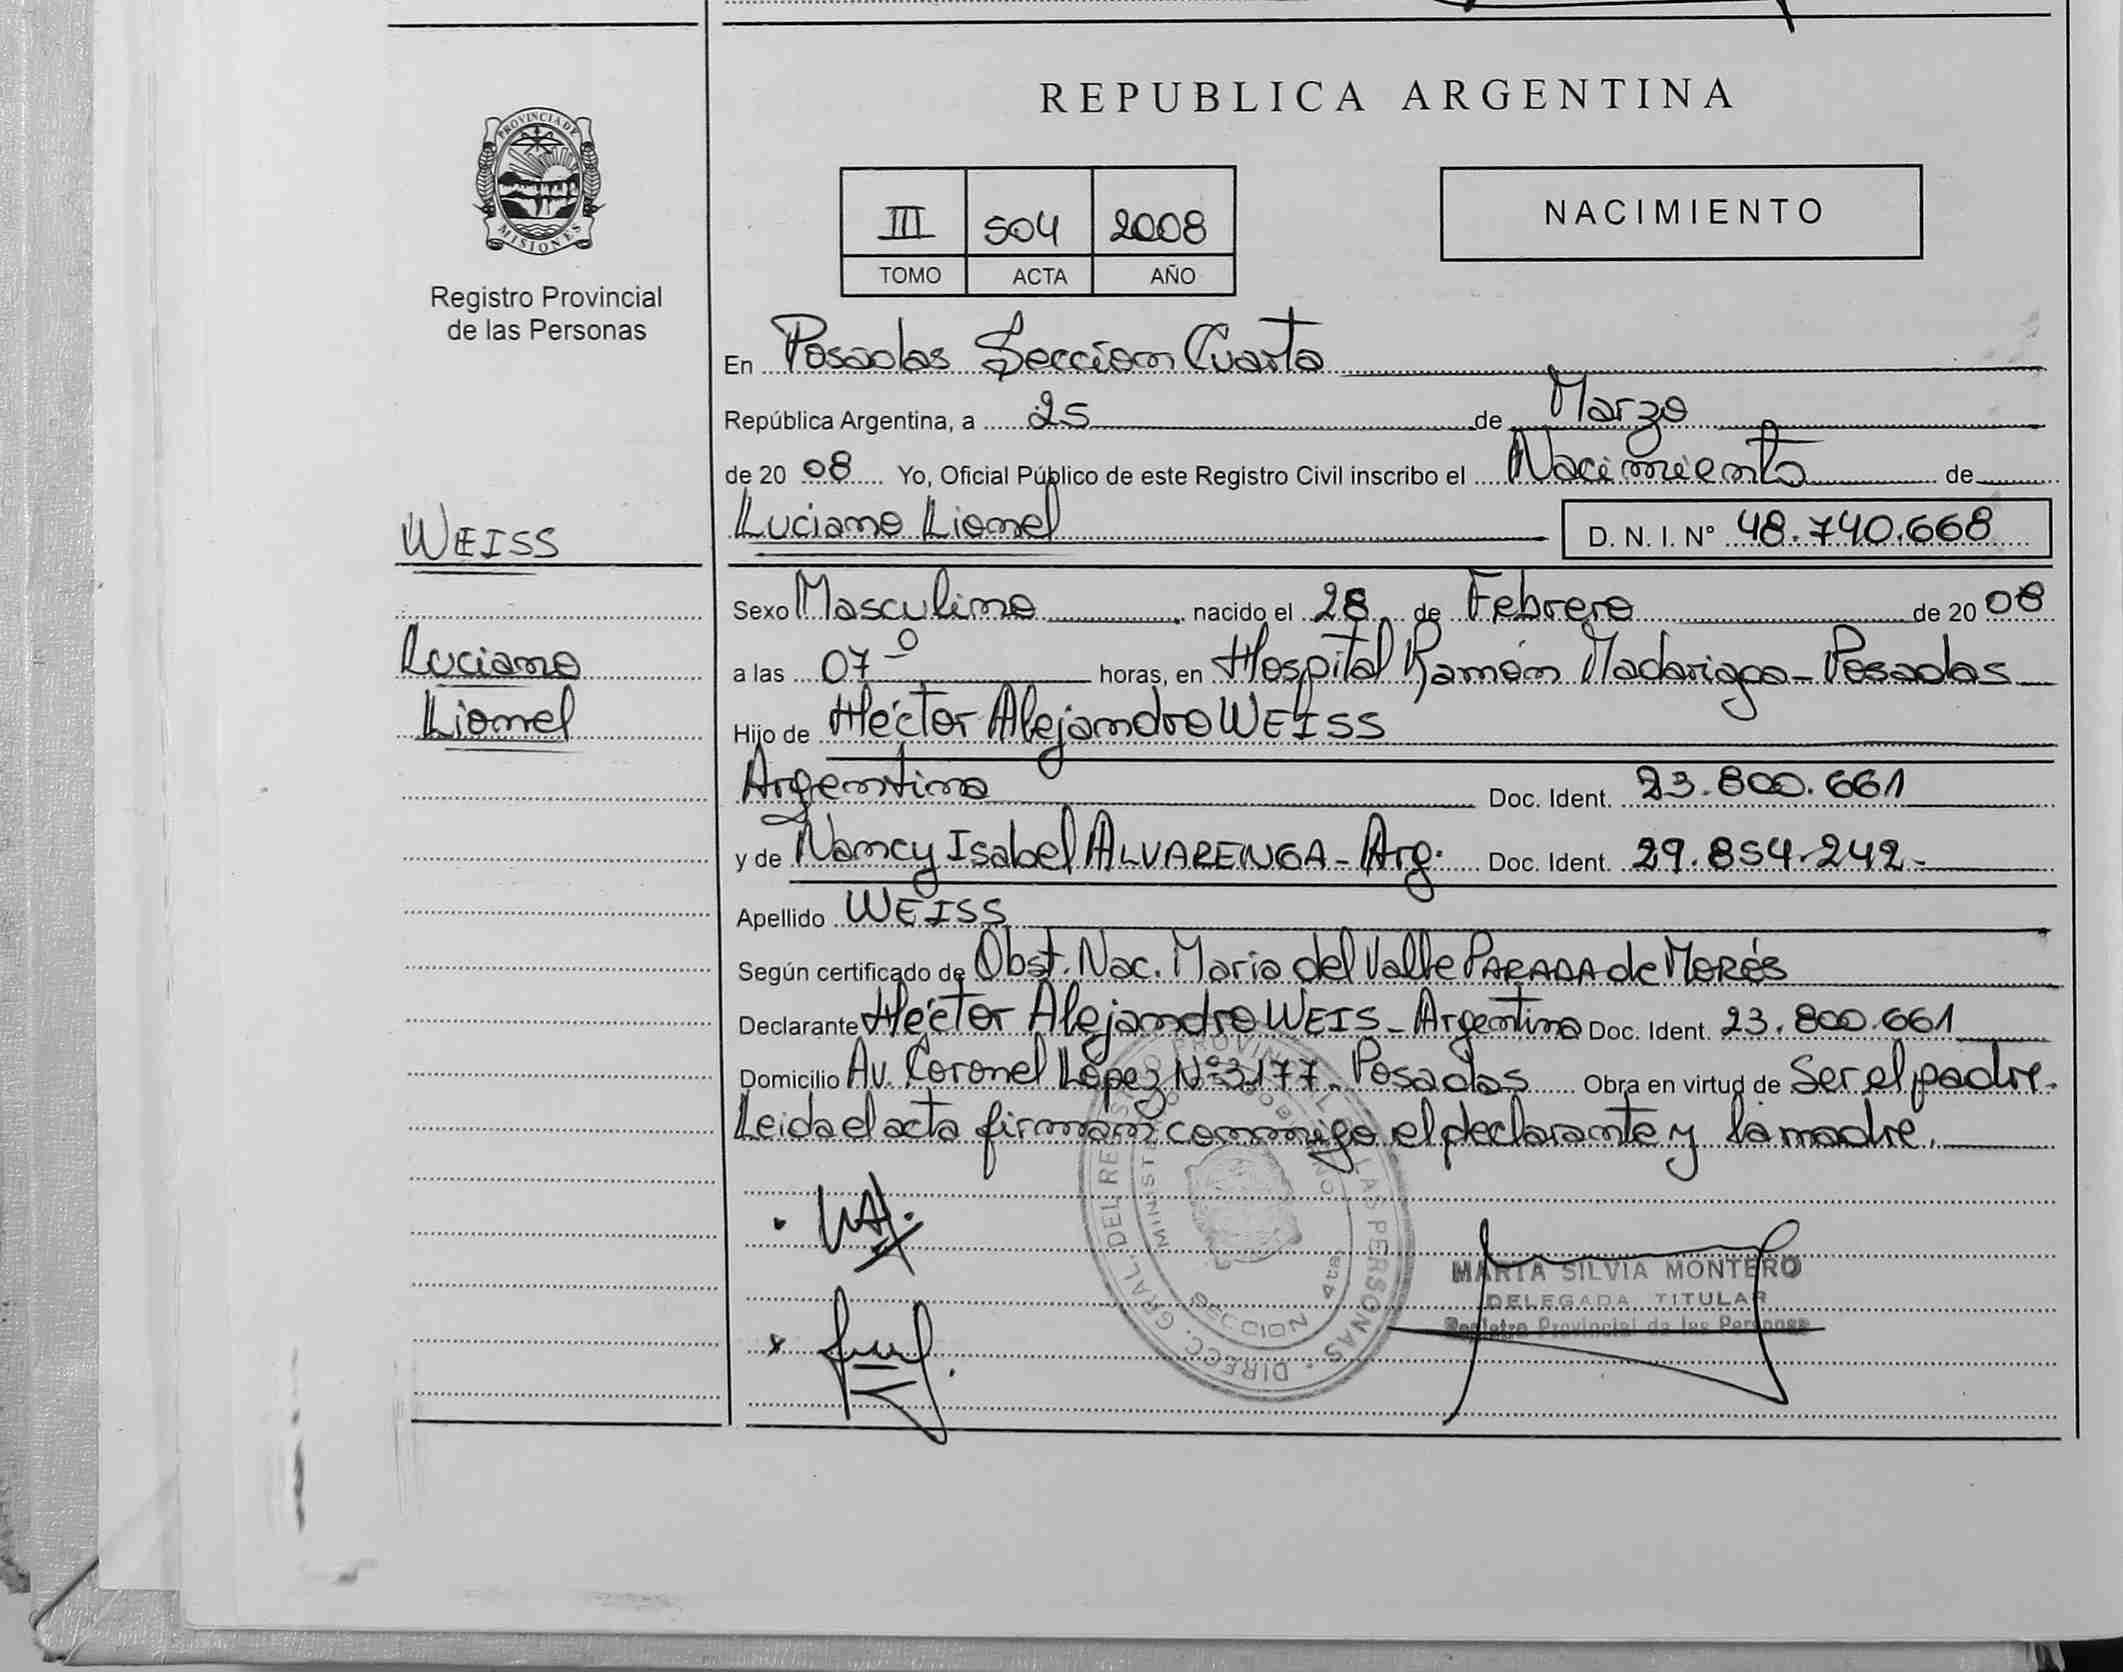 REPUBLICA ARGENTINA
PROVINCIA DE MISIONES
Registro Provincial
de las Personas
III 504 2008
TOMO ACTA AÑO
NACIMIENTO
En Posadas Sección Cuarta
República Argentina, a 25 de Marzo
de 20 08 Yo, Oficial Público de este Registro Civil inscribo el Nacimiento de
Luciano Lionel D. N. I. N° 48.740.668
WEISS
Luciano
Lionel
Sexo Masculino nacido el 28 de Febrero de 20 08
a las 07 º horas, en Hospital Ramón Madariaga - Posadas
Hijo de Héctor Alejandro WEISS
Argentino Doc. Ident. 23.800.661
y de Nancy Isabel ALVARENGA - Arg. Doc. Ident. 29.854.242-
Apellido WEISS
Según certificado de Obst. Nac. María del Valle PARADA de MORÉS
Declarante Héctor Alejandro WEIS - Argentino Doc. Ident. 23.800.661
Domicilio Av. Coronel López N° 3177 - Posadas Obra en virtud de Ser el padre.
Leida el acta firman conmigo el declarante y la madre.
DIRECC. GRAL. DEL REGISTRO PROVINCIAL DE LAS PERSONAS
SECCION 4ta.
MARIA SILVIA MONTERO
DELEGADA TITULAR
Registro Provincial de las Personas